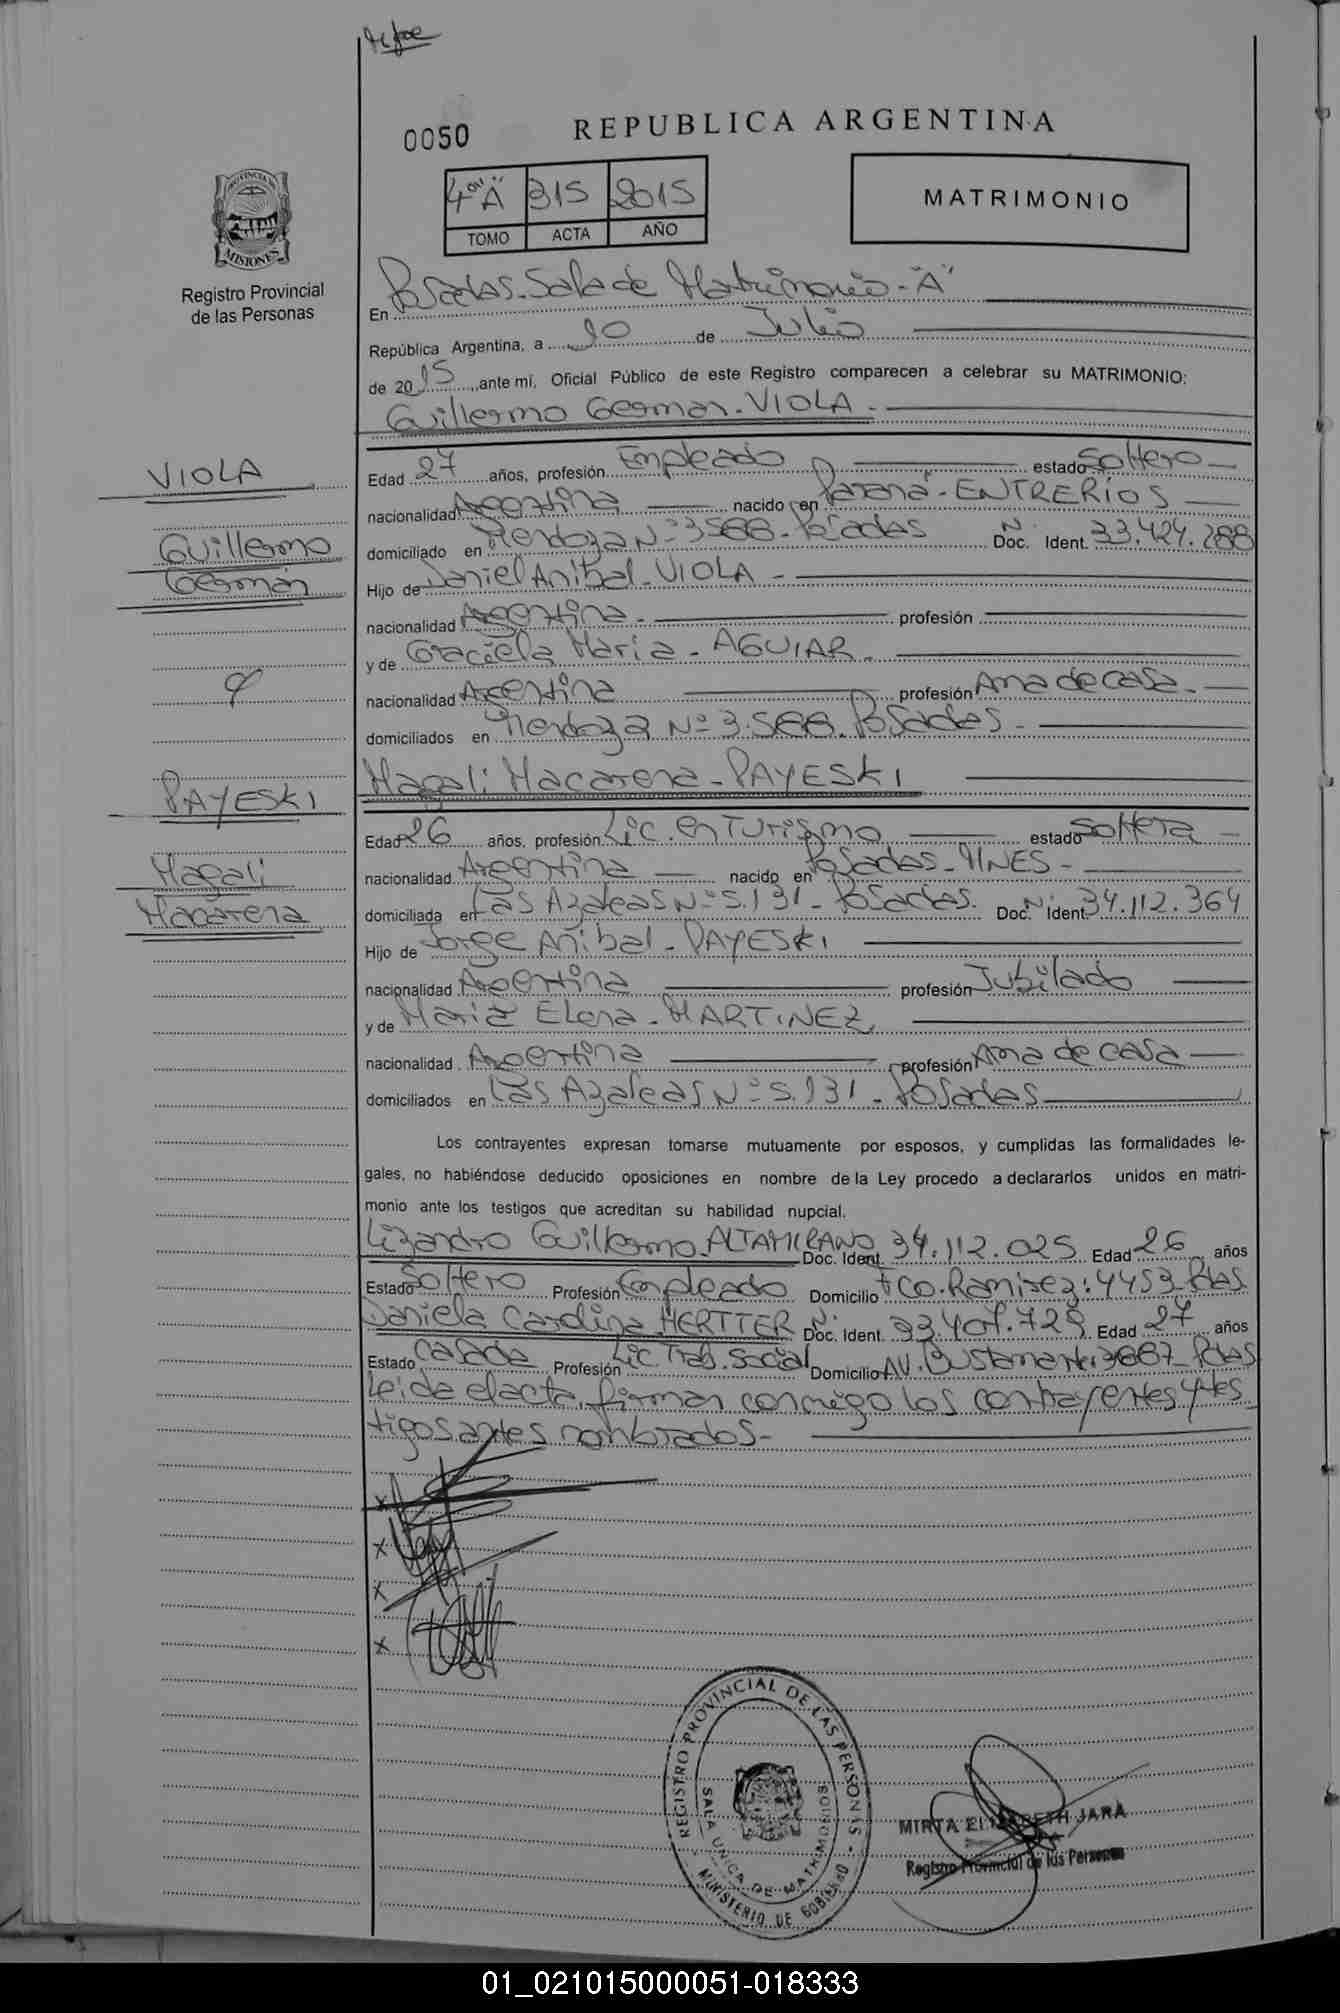 0050 REPUBLICA ARGENTINA
4º "A" 315 2015
TOMO ACTA AÑO
MATRIMONIO
PROVINCIA DE
MISIONES
Registro Provincial
de las Personas
En Posadas. Sala de Matrimonio - "A"
República Argentina, a 10 de Julio
de 2015, ante mí, Oficial Público de este Registro comparecen a celebrar su MATRIMONIO:
Guillermo German - VIOLA -
VIOLA
Guillermo
Germán
Edad 27 años, profesión Empleado estado Soltero
nacionalidad Argentina nacido en Paraná - ENTRE RIOS
domiciliado en Mendoza Nº 3588 - Posadas Doc. N Ident. 33.424.288
Hijo de Daniel Anibal - VIOLA -
nacionalidad Argentina - profesión
y de Graciela Maria - AGUIAR -
nacionalidad Argentina profesión Ama de casa -
domiciliados en Mendoza Nº 3.588 - Posadas -
Magali Macarena - PAYESKI
PAYESKI
Magali
Macarena
Edad 26 años, profesión Lic. en Turismo estado Soltera
nacionalidad Argentina nacido en Posadas - MNES -
domiciliada en Las Azaleas Nº 5.131 - Posadas. Doc. N Ident. 34.112.364
Hijo de Jorge Anibal - PAYESKI
nacionalidad Argentina profesión Jubilado
y de Maria Elena - MARTINEZ
nacionalidad Argentina profesión Ama de casa
domiciliados en Las Azaleas Nº 5.131 - Posadas
Los contrayentes expresan tomarse mutuamente por esposos, y cumplidas las formalidades le-
gales, no habiéndose deducido oposiciones en nombre de la Ley procedo a declararlos unidos en matri-
monio ante los testigos que acreditan su habilidad nupcial.
Lizandro Guillermo - ALTAMIRANO Doc. Ident. 34.112.025 Edad 26 años
Estado Soltero Profesión Empleado Domicilio Fco. Ramirez: 4453 - Pdas
Daniela Carolina HERTTER Doc. Ident. Edad 27 años
Estado Casada Profesión Lic. Trab. Social Domicilio AV. Bustamante: 3887 - Pdas
Leida el acta, firman conmigo los contrayentes y tes-
tigos antes nombrados -
X
X
X
X
REGISTRO PROVINCIAL DE LAS PERSONAS
SALA UNICA DE MATRIMONIOS
MINISTERIO DE GOBIERNO
MIRTA ELIZABETH JARA
Registro Provincial de las Personas
01_021015000051-018333